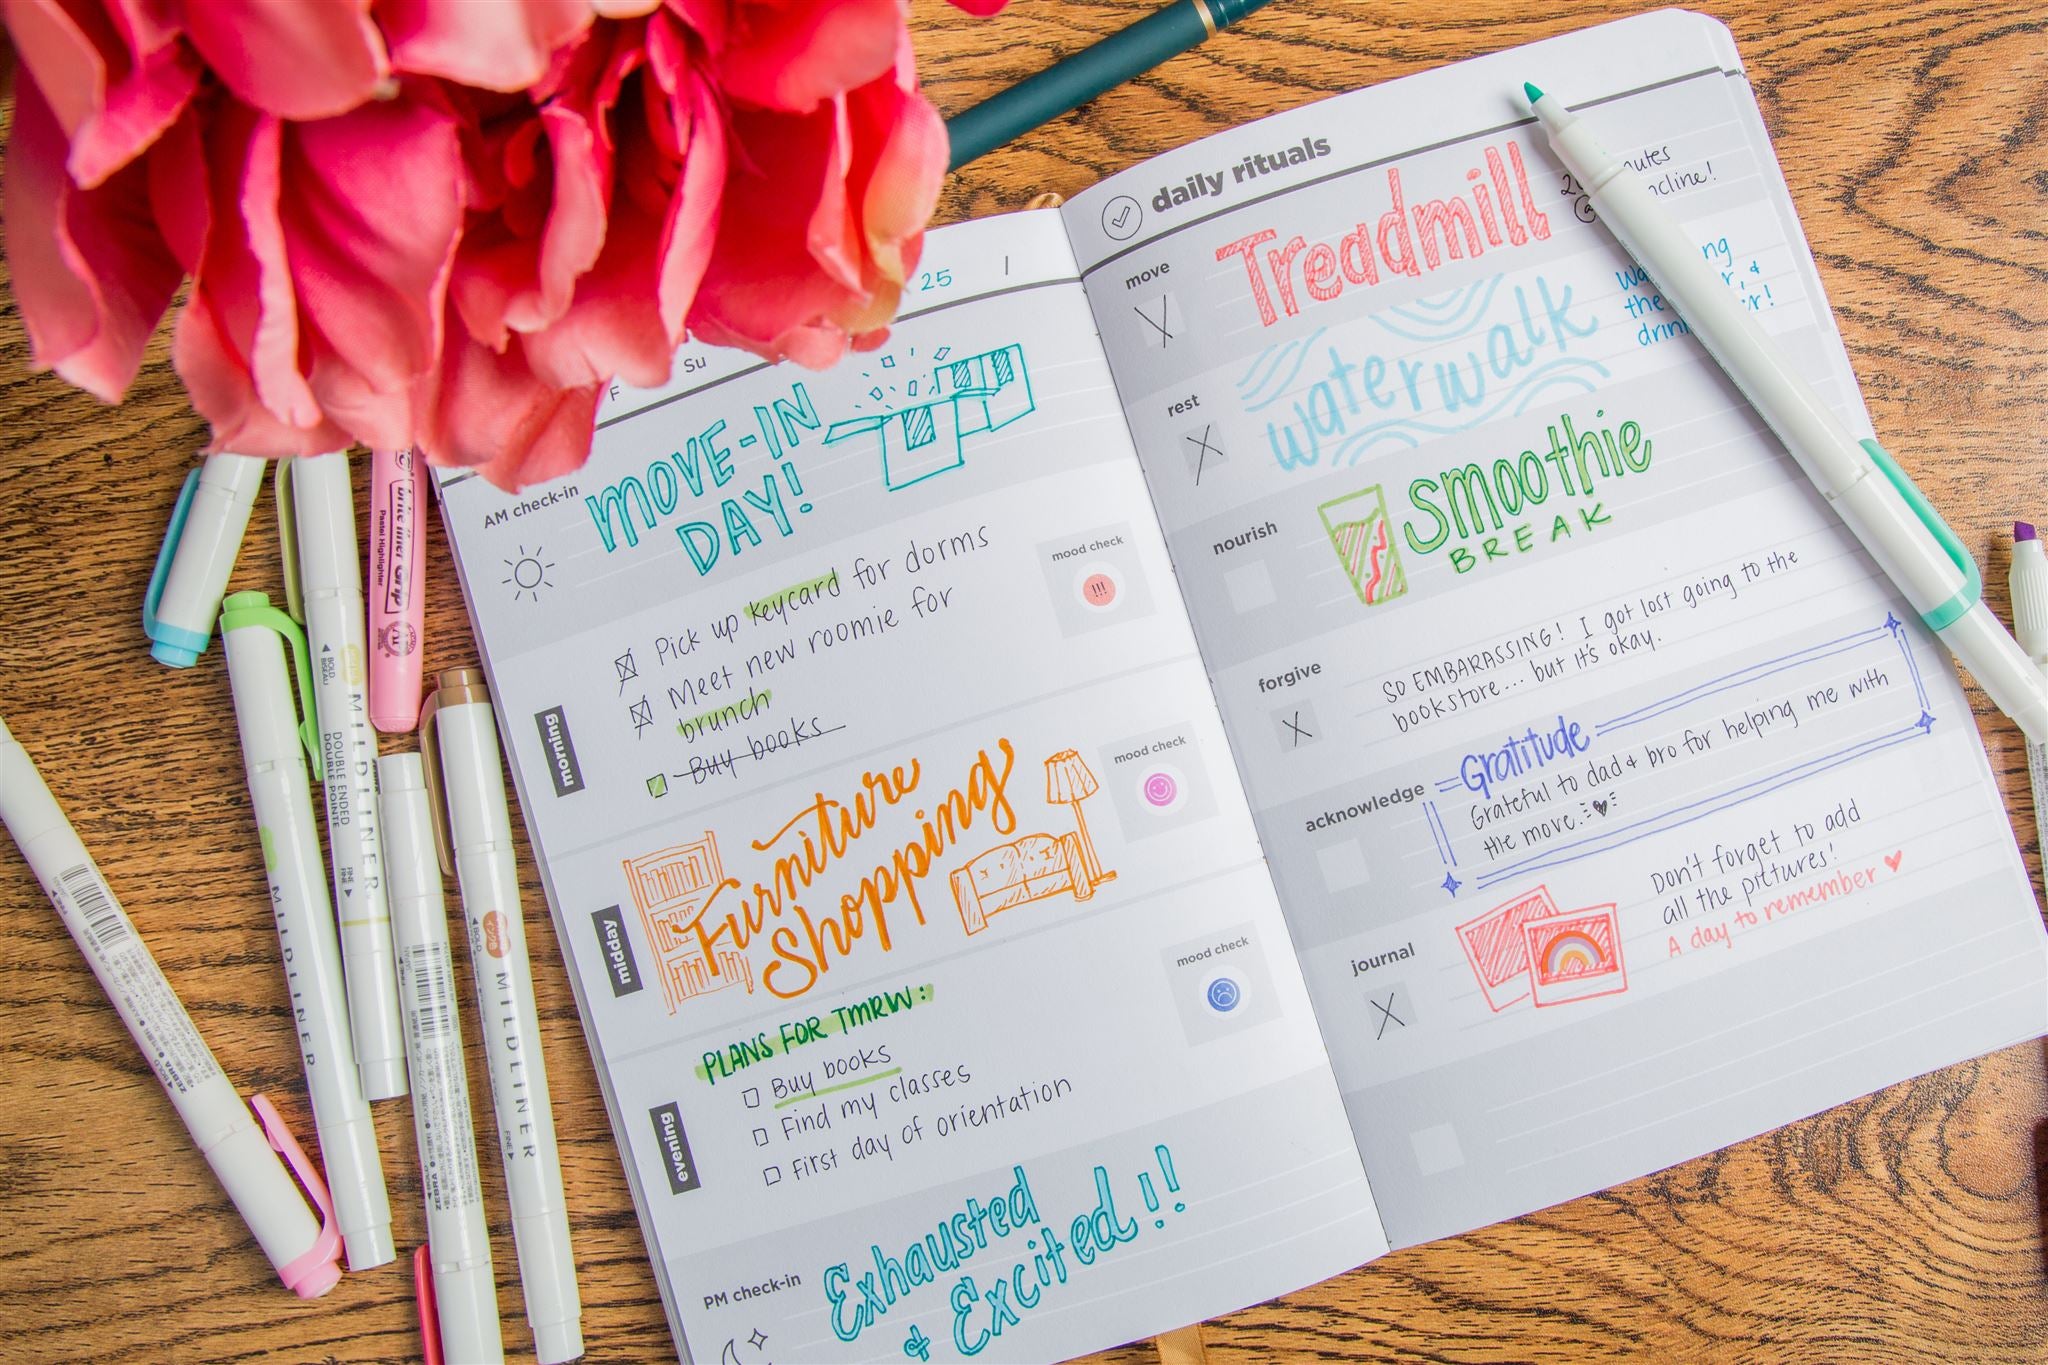 25
F Su
AM check-in
MOVE-IN
DAY!
mood check
!!!
morning
Pick up keycard for dorms
Meet new roomie for
brunch
Buy books
midday
Furniture
Shopping
mood check
evening
PLANS FOR TMRW:
Buy books
Find my classes
First day of orientation
mood check
PM check-in
Exhausted
& Excited!!
daily rituals
move
Treadmill
rest
waterwalk
nourish
smoothie
BREAK
forgive
SO EMBARASSING! I got lost going to the
bookstore... but it's okay.
acknowledge
Gratitude
Grateful to dad & bro for helping me with
the move.
journal
Don't forget to add
all the pictures!
A day to remember
brite liner Grip
Pastel Highlighter
MILDLINER
DOUBLE ENDED
DOUBLE POINTE
BOLD
BISEAU
FINE
MILDLINER
MILDLINER
BOLD
FINE
ZEBRA
ZEBRA